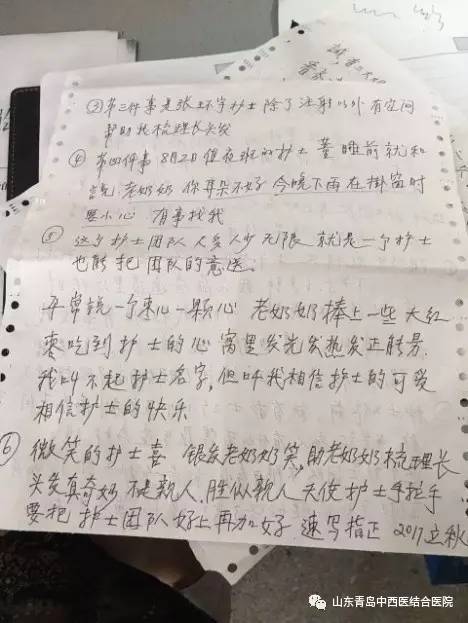 ③第三件事是张环宇护士除了注射以外有空间
帮助我梳理长头发
④第四件事8月2日值夜班的护士 睡前就和
说 老奶奶 你耳朵不好 今晚下雨在掛留时
要小心 有事找我
⑤这个护士团队人多人少无限 就是一个护士
也能把团队的意送。
平常说一个来心一颗心 老奶奶捧上一些大红
枣吃到护士的心窝里发光发热发正能量
我叫不起护士名字,但叫我相信护士的可爱
相信护士的快乐
⑥微笑的护士喜 银发老奶奶笑,助老奶奶梳理长
头发真奇妙 不是亲人,胜似親人 天使护士手拉手
要把护士团队好上再加好 速写指正 2017立秋
山东青岛中西医结合医院